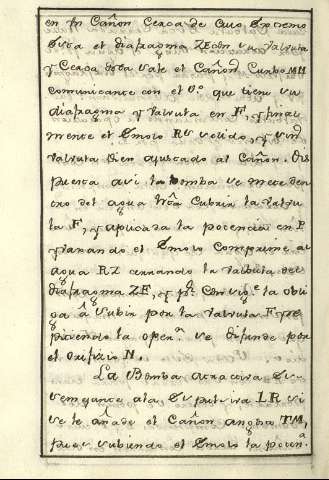 en fn Cañon Cerca de Cuio Extremo
Sita el diafragma ZE con su Valvula
y Cerca de ta Sale el Cañon Curbo MN
Comunicante con el 1º que tiene su
diafragma y Valvula en F, y final
mente el Embolo RS solido, y sin
Valvula bien ajustado al Cañon. Dis
puesta asi la bomba se mete den
tro del agua hta Cubrir la Valvu
la F, y aplicada la potencia en P
y vajando el Embolo Comprime al
agua RZ cerrando la Valbula del
diafragma ZF, y pr Consige la obli
ga á Subir por la Valvula F, y re
pitiendo la opern se difunde por
el Orificio N.
La Bomba atractiva Es
semejante a la Espulsiva LR si
se le añade el Cañon angosto TM,
pues subiendo el Embolo la poten.a